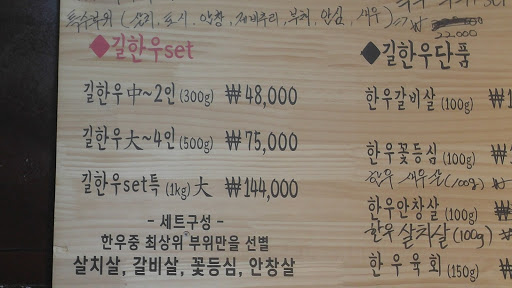 특수부위 (살치, 토시, 안창, 제비추리, 부채, 안심, 새우)
22.000
◆길한우set
길한우中~2인 (300g) ₩48,000
길한우大~4인 (500g) ₩75,000
길한우set특 (1kg) 大 ₩144,000
- 세트구성 -
한우중 최상위 부위만을 선별
살치살, 갈비살, 꽃등심, 안창살
◆길한우단품
한우갈비살 (100g) ₩1
한우꽃등심 (100g) ₩
한우 새우살 (100g) ₩
한우안창살 (100g) ₩
한우살치살 (100g) ₩
한우육회 (150g) ₩